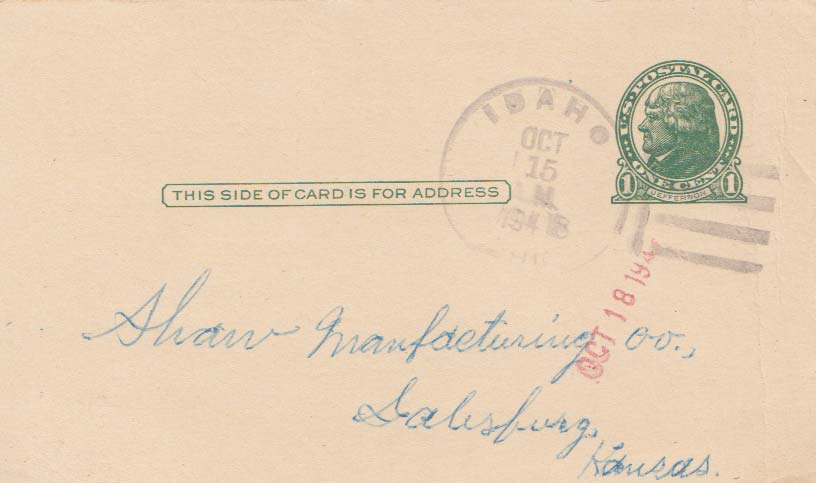 U.S. POSTAL CARD
ONE CENT
1 JEFFERSON 1
IDAHO
OCT
15
1948
OHIO
THIS SIDE OF CARD IS FOR ADDRESS
OCT 18 194
Shaw Manfacturing Co.,
Galesburg,
Kansas.